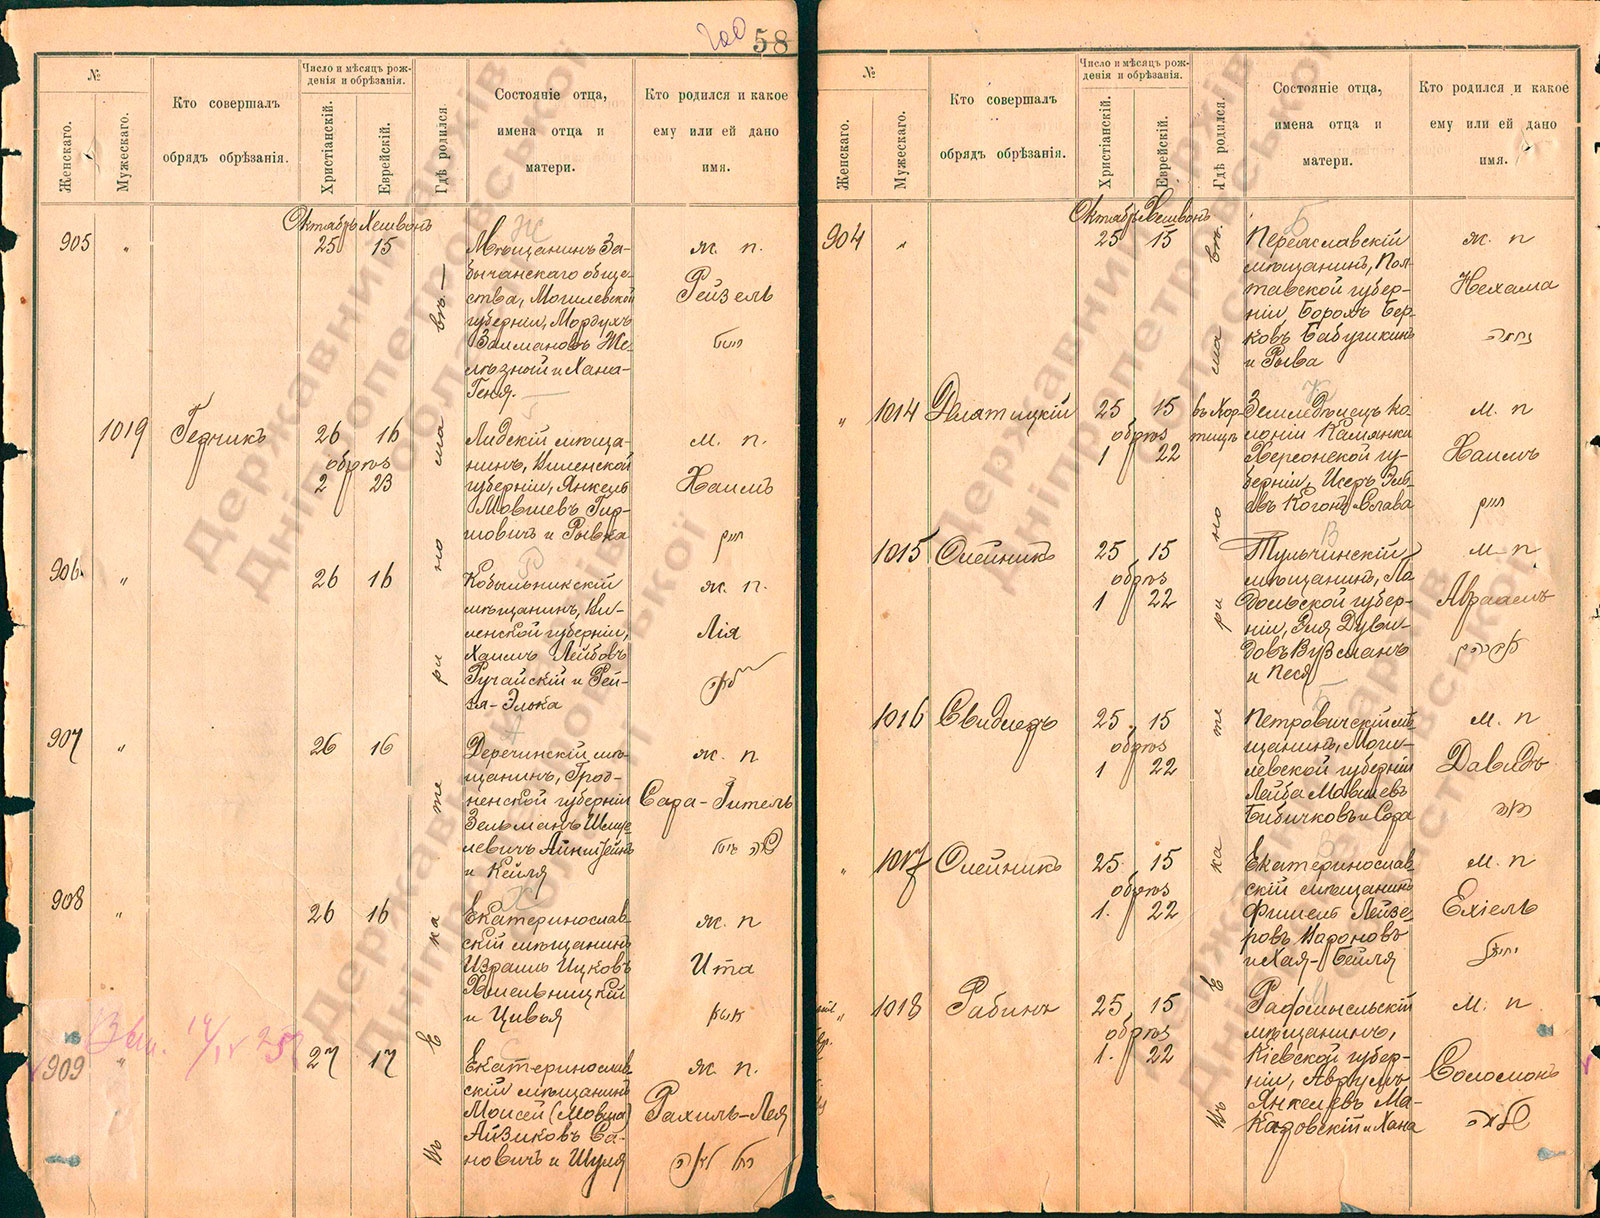 200
58
№
Женскаго.
Мужескаго.
Кто совершалъ
обрядъ обрѣзанія.
Число и мѣсяцъ рож-
денія и обрѣзанія.
Христіанскій.
Еврейскій.
Гдѣ родился.
Состояніе отца,
имена отца и
матери.
Кто родился и какое
ему или ей дано
имя.
Въ Екатеринославѣ
Октябрь Хешвонъ
905 „ 25 15
Мѣщанинъ За-
бычанскаго обще-
ства, Могилевской
губерніи, Мордухъ
Залмановъ Же-
лѣзной и Хана-
Геня.
ж. п.
Рейзель
1019 Герчикъ 26 16
обрѣз
2 23
Лидскій мѣща-
нинъ, Виленской
губерніи, Янкель
Мовшевъ Гир-
шовичъ и Рывка
м. п.
Хаимъ
חיים
906. „ 26 16
Кобыльникскій
мѣщанинъ, Ви-
ленской губерніи,
Хаимъ Лейбовъ
Ручайскій и Рей-
зя-Элока
ж. п.
Лія
לאה
907 „ 26 16
Деречинскій мѣ-
щанинъ, Грод-
ненской губерніи
Зельманъ Шмуе-
левичъ Айнштейнъ
и Кейля
ж. п
Сара-Гитель
שרה גיטל
908 „ 26 16
Екатеринослав-
скій мѣщанинъ
Израиль Ицковъ
Хмельницкій
и Цивья
ж. п
Ита
איטא
909 „ 27 17
Екатеринослав-
скій мѣщанинъ
Моисей (Мовша)
Айзиковъ Са-
новичъ и Шуля
ж. п.
Рахиль-Лея
רחל לאה
№
Женскаго.
Мужескаго.
Кто совершалъ
обрядъ обрѣзанія.
Число и мѣсяцъ рож-
денія и обрѣзанія.
Христіанскій.
Еврейскій.
Гдѣ родился.
Состояніе отца,
имена отца и
матери.
Кто родился и какое
ему или ей дано
имя.
Въ Екатеринославѣ
Октябрь Хешвонъ
904 „ 25 15
Переяславскій
мѣщанинъ, Пол-
тавской губер-
ніи, Борохъ Бер-
ковъ Бабушкинъ
и Рыва
ж. п
Нехама
נחמה
„ 1014 Делатицкій 25 15
обрѣз
1 22
въ Хор-
тицѣ
Земледѣлецъ ко-
лоніи Камянка
Херсонской гу-
берніи, Исеръ
Когонъ
м. п
Хаимъ
חיים
1015 Олейникъ 25 15
обрѣз
1 22
Тульчинскій
мѣщанинъ, По-
дольской губер-
ніи, Эля Дуви-
довъ Вузманъ
и Песя
м п
Авраамъ
אברהם
1016 Свидлеръ 25 15
обрѣз
1 22
Петровичскій мѣ-
щанинъ, Моги-
левской губерніи
Лейба Мовшевъ
Бибичковъ и Сора
м. п
Давидъ
דוד
„ 1017 Олейникъ 25 15
обрѣз
1. 22
Екатеринослав-
скій мѣщанинъ
Фишель Лейзе-
ровъ Мароновъ
и Хая-Бейля
м. п
Ехіель
יחיאל
„ 1018 Рабинъ 25 15
обрѣз
1. 22
Радомысльскій
мѣщанинъ,
Кіевской губер-
ніи, Аврумъ
Янкелевъ Ма-
каровскій и Хана
м. п
Соломонъ
שלמה
Державний архів
Дніпропетровської
області